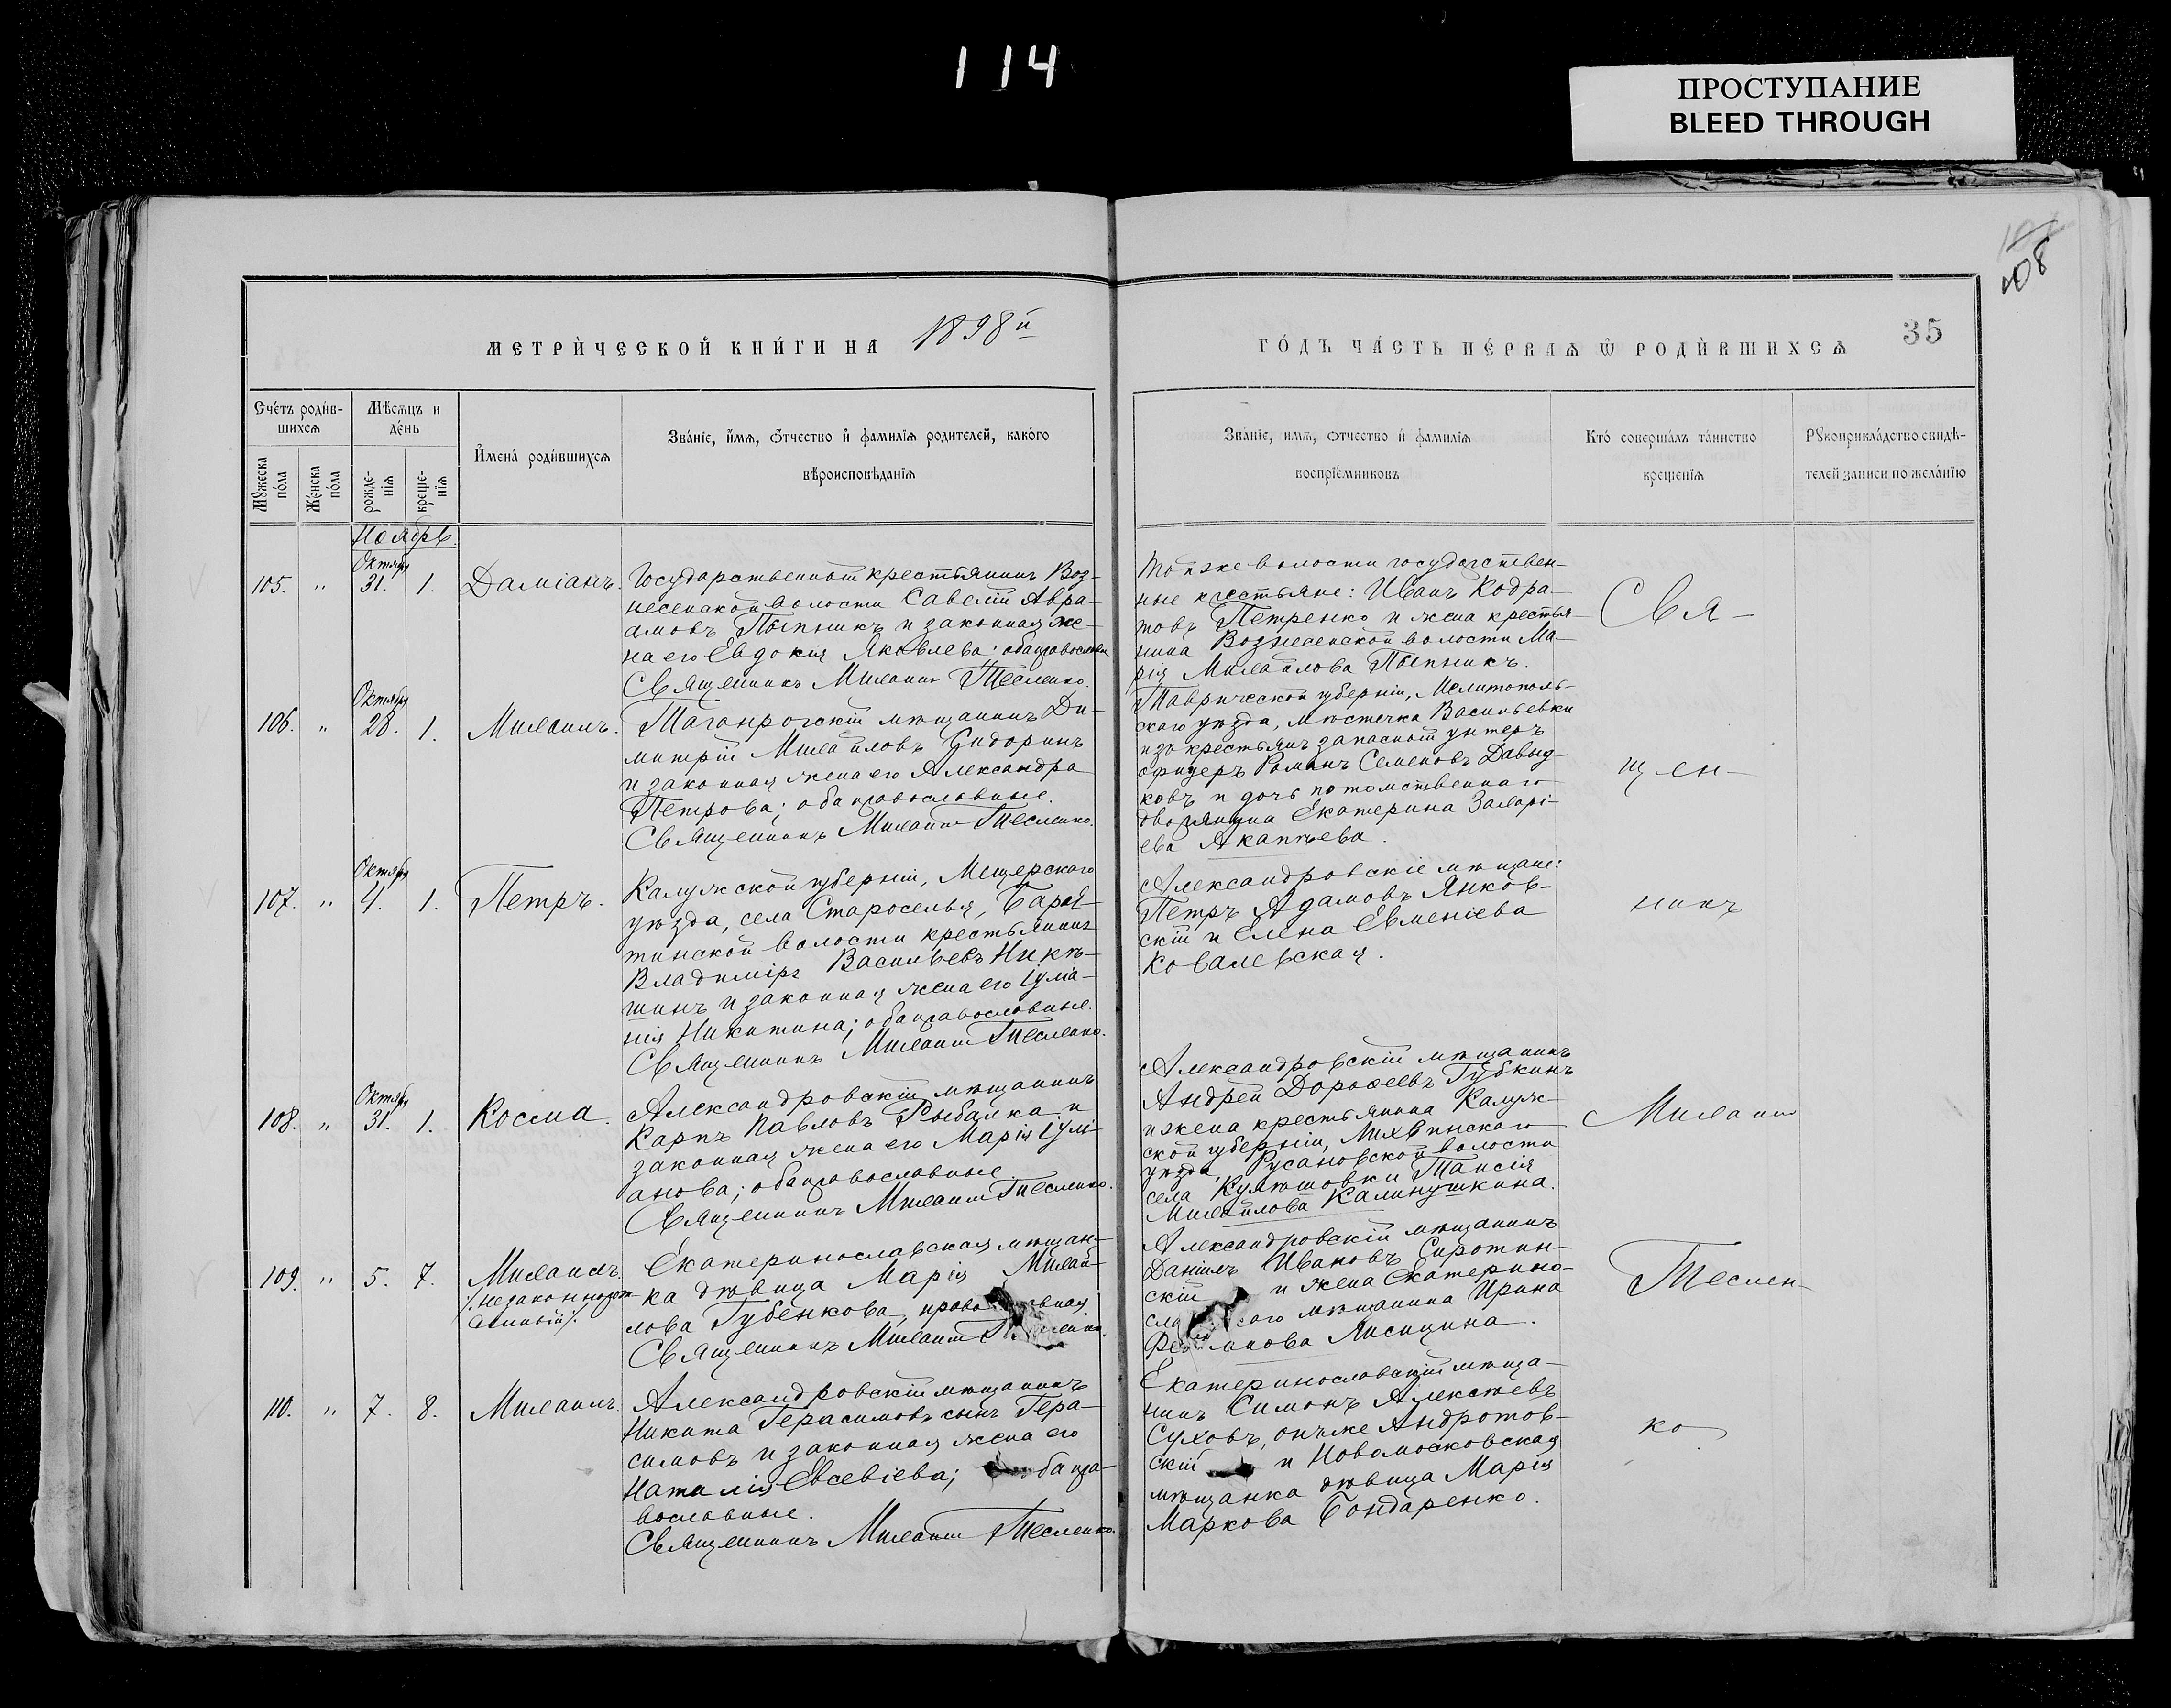 114
ПРОСТУПАНИЕ
BLEED THROUGH
108
МЕТРИ́ЧЕСКОЙ КНИ́ГИ НА 1898й
ГО́ДЪ ЧА́СТЬ ПЕ́РВАѦ Ѡ҆ РОДИ́ВШИХСѦ
35
Сче́тъ роди́в-
шихсѧ
Мꙋ́жеска по́ла
Же́нска по́ла
Мѣ́сѧцъ и
де́нь
рожде-
нїѧ
креще-
нїѧ
И҆мена́ роди́вшихсѧ
Зва́нїе, и҆́мѧ, ѻ҆́тчество и҆ фамилїѧ родителей, како́го
вѣроисповѣ́данїѧ
Зва́нїе, имѧ, ѻтчество и҆ фамилїѧ
воспрїе́мниковъ
Кто̀ соверша́лъ та́инство
крещенїѧ
Рꙋкоприкла́дство свидѣ́-
телей записи по жела́нїю
Ноябрь.
105. " Октября 31. 1. Даміанъ.
Государственный крестьянинъ Воз-
несенской волости Савелій Авра-
амовъ Пыпникъ и законная же-
на его Евдокія Яковлева; оба православн
Священникъ Михаилъ Тесленко.
Той же волости государствен-
ные крестьяне: Иванъ Кодра-
товъ Петренко и жена крестья-
нина Вознесенской волости Ма-
рія Михайлова Пыпникъ.
Свя-
106. " Октября 28. 1. Михаилъ.
Таганрогскій мѣщанинъ Ди-
митрій Михайловъ Сидоринъ
и законная жена его Александра
Петрова; оба православные.
Священникъ Михаилъ Тесленко.
Таврической губерніи, Мелитополь-
скаго уѣзда, мѣстечка Васильевки
изъ крестьянъ запасный унтеръ
офицеръ Романъ Семеновъ Давид-
ковъ и дочь потомственнаго
дворянина Екатерина Захарі-
ева Акатьева.
щен-
107. " Октября 4. 1. Петръ.
Калужской губерніи, Мещерскаго
уѣзда, села Староселья, Барят-
тинской волости крестьянинъ
Владиміръ Васильевъ Никѣ-
шинъ и законная жена его Іулiа-
нія Никитина; оба православные.
Священникъ Михаилъ Тесленко.
Александровскіе мѣщане:
Петръ Адамовъ Янков-
скій и Елена Евменіева
Ковалевская.
никъ
108. " Октября 31. 1. Косма.
Александровскій мѣщанинъ
Карпъ Павловъ Рыбалка и
законная жена его Марія Іулі-
анова; оба православные.
Священникъ Михаилъ Тесленко.
Александровскій мѣщанинъ
Андрей Дороѳеевъ Губкинъ
и жена крестьянина Калуж-
ской губерніи, Лихвинскаго
уѣзда, Русановской волости
села Таисія
Михайлова Калинушкина.
Михаилъ
109. " 5. 7. Михаилъ.
/незаконнорож-
денный/.
Екатеринославская мѣщан-
ка дѣвица Марія Михай-
лова Губенкова, православная
Священникъ Михаилъ Тесленко.
Александровскій мѣщанинъ
Даніилъ Ивановъ Сиротин-
скій и жена Екатерино-
славскаго мѣщанина Ирина
Лисицина.
Теслен-
110. " 7. 8. Михаилъ.
Александровскій мѣщанинъ
Никита Герасимовъ сынъ Гера-
симовъ и законная жена его
Наталія Евсевіева; оба пра-
вославные.
Священникъ Михаилъ Тесленко.
Екатеринославскій мѣща-
нинъ Симонъ Алексѣевъ
Суховъ, онъ же Андротов-
скій и Новомосковская
мѣщанка дѣвица Марія
Маркова Бондаренко.
ко